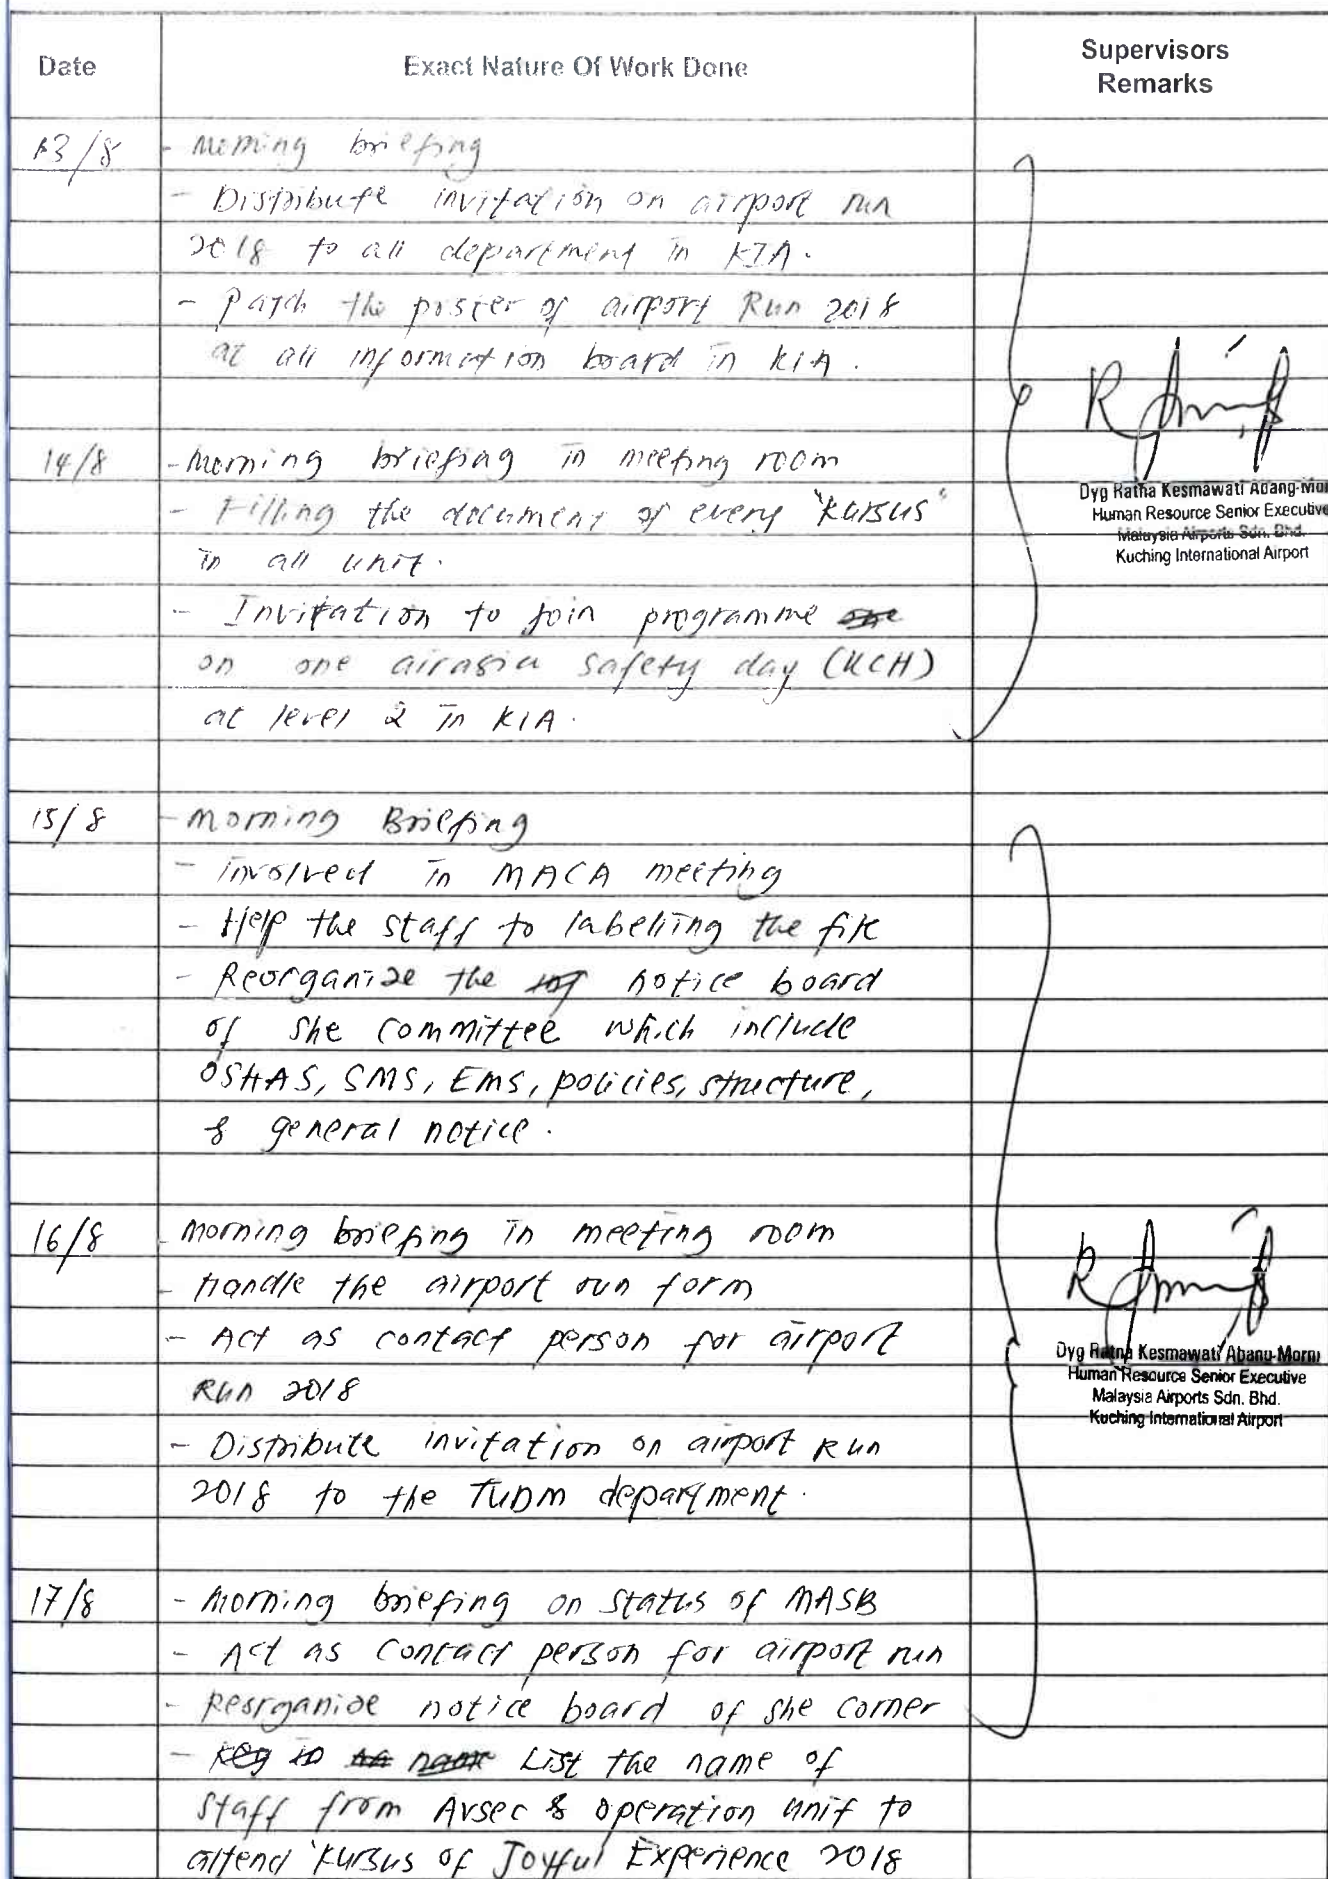 Date Exact Nature Of Work Done Supervisors
Remarks
13/8 - Morning briefing
- Distribute invitation on airport run
2018 to all department in KIA.
- Patch the poster of airport Run 2018
at all information board in KIA.
14/8 - Morning briefing in meeting room
- Filling the document of every "kursus"
in all unit.
- Invitation to join programme
on one airasia safety day (KCH)
at level 2 in KIA.
Dyg Ratna Kesmawati Abang-Mor
Human Resource Senior Executive
Malaysia Airports Sdn. Bhd.
Kuching International Airport
15/8 - Morning Briefing
- involved in MACA meeting
- Help the staff to labelling the file
- Reorganize the notice board
of she committee which include
OSHAS, SMS, EMS, policies, structure,
& general notice.
16/8 - Morning briefing in meeting room
- Handle the airport run form
- Act as contact person for airport
Run 2018
- Distribute invitation on airport Run
2018 to the TUDM department.
Dyg Ratna Kesmawati Abang-Morni
Human Resource Senior Executive
Malaysia Airports Sdn. Bhd.
Kuching International Airport
17/8 - Morning briefing on status of MASB
- Act as contact person for airport run
- Reorganize notice board of she corner
- List the name of
staff from Avsec & operation unit to
attend 'kursus of Joyful Experience 2018